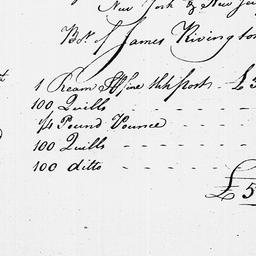 New York & New Jer
Bt. of James Rivington
1 Ream Sfine thk post £3
100 Quills
1/4 Pound Pounce
100 Quills
100 ditto
£5